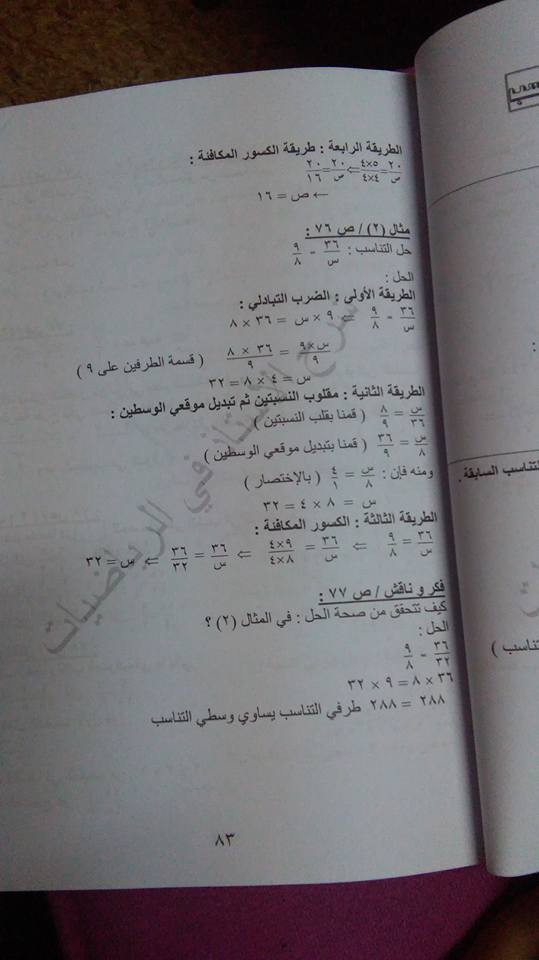 الطريقة الرابعة : طريقة الكسور المكافئة :
٢٠/س = ٤×٥/٤×٤ ⇐ ٢٠/س = ٢٠/١٦
← ص = ١٦
مثال (٢) / ص ٧٦ :
حل التناسب : ٣٦/س = ٩/٨
الحل :
الطريقة الأولى : الضرب التبادلي :
٣٦/س = ٩/٨ ⇐ ٩ × س = ٣٦ × ٨
س×٩/٩ = ٣٦ × ٨/٩ ( قسمة الطرفين على ٩ )
س = ٤ × ٨ = ٣٢
الطريقة الثانية : مقلوب النسبتين ثم تبديل موقعي الوسطين :
س/٣٦ = ٨/٩ ( قمنا بقلب النسبتين )
س/٨ = ٣٦/٩ ( قمنا بتبديل موقعي الوسطين )
ومنه فإن : س/٨ = ٤/١ ( بالإختصار )
س = ٨ × ٤ = ٣٢
الطريقة الثالثة : الكسور المكافئة :
٣٦/س = ٩/٨ ⇐ ٣٦/س = ٤×٩/٤×٨ ⇐ ٣٦/س = ٣٦/٣٢ ⇐ س = ٣٢
فكر و ناقش / ص ٧٧ :
كيف تتحقق من صحة الحل : في المثال (٢) ؟
الحل :
٣٦/٣٢ = ٩/٨
٣٦ × ٨ = ٩ × ٣٢
٢٨٨ = ٢٨٨ طرفي التناسب يساوي وسطي التناسب
٨٣
التناسب السابقة .
تناسب )
في الرياضيات